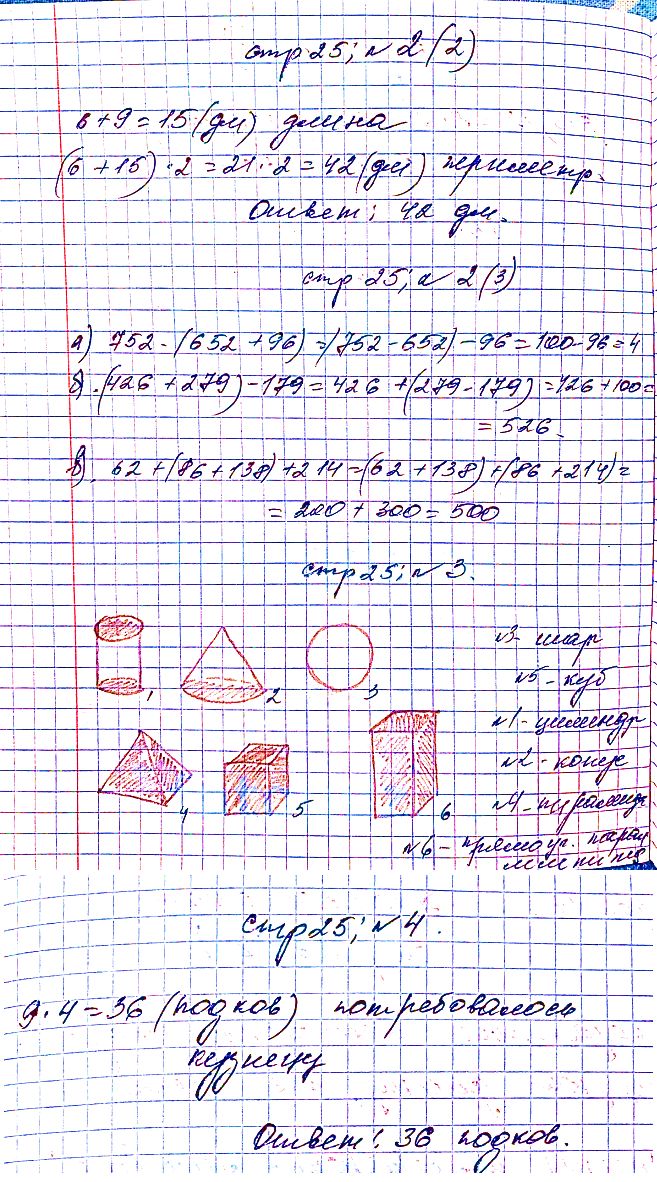 стр 25; № 2 (2)
6 + 9 = 15 (дм) длина
(6 + 15) · 2 = 21 · 2 = 42 (дм) периметр.
Ответ: 42 дм.
стр 25; № 2 (3)
а) 752 - (652 + 96) = (752 - 652) - 96 = 100 - 96 = 4
б) (426 + 279) - 179 = 426 + (279 - 179) = 426 + 100 =
= 526
в) 62 + (86 + 138) + 214 = (62 + 138) + (86 + 214) =
= 200 + 300 = 500
стр 25; № 3.
1
2
3
4
5
6
№3 - шар
№5 - куб
№1 - цилиндр
№2 - конус
№4 - пирамида
№6 - прямоуг. парал
стр 25; № 4.
9 · 4 = 36 (подков) потребовалось
кузнецу
Ответ: 36 подков.